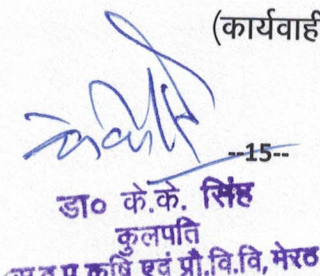 (कार्यवाही
--15--
डा० के.के. सिंह
कुलपति
कृषि एवं प्रौ.वि.वि. मेरठ